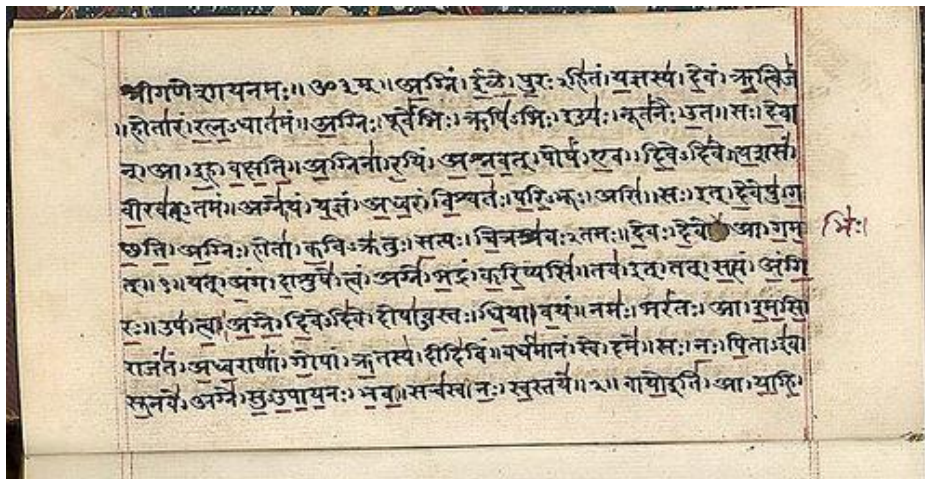 श्रीगणेशायनमः॥ॐ३म्॥अ॒ग्निं।ई॒ळे॒।पु॒रःऽहि॑तं।य॒ज्ञस्य॑।दे॒वं।ऋ॒त्विजं॑
॥होता॑रं।र॒त्न॒ऽधात॑मं॥अ॒ग्निः।पूर्वे॑भिः।ऋषि॑ऽभिः।ईड्यः॑।नूत॑नैः।उ॒त॥सः।दे॒वा
न्।आ।इ॒ह।व॒क्ष॒ति॒॥अ॒ग्निना॑।र॒यिं।अ॒श्न॒व॒त्।पोषं॑।ए॒व।दि॒वेऽदि॑वे॥य॒शसं॑
वी॒रव॑त्ऽतमं॥अग्ने॑।यं।य॒ज्ञं।अ॒ध्व॒रं।वि॒श्वतः॑।प॒रि॒ऽभूः।असि॑॥सः।इत्।दे॒वेषु॑।ग॒
च्छ॒ति॒।अ॒ग्निः।होता॑।क॒विऽक्र॑तुः।स॒त्यः।चि॒त्रश्र॑वःऽतमः॥दे॒वः।दे॒वे आ।ग॒म॒ भिः॑।
त्॥१॥यत्।अं॒ग।दा॒शुषे॑।त्वं।अग्ने॑।भ॒द्रं।क॒रि॒ष्यसि॑॥तव॑।इत्।तत्।स॒त्यं।अं॒गि॒
रः॒॥उप॑।त्वा॒।अ॒ग्ने॒।दि॒वेऽदि॑वे।दोषा॑ऽवस्तः।धि॒या।व॒यं॥नमः॑।भरं॑तः।आ।इ॒म॒सि॒
राजं॑तं।अ॒ध्व॒राणां॑।गो॒पां।ऋ॒तस्य॑।दीदि॑विं॥वर्ध॑मानं।स्वे।दमे॑॥सः।नः॒।पि॒ताऽइ॑व।
सू॒नवे॑।अग्ने॑।सु॒ऽउ॒पा॒य॒नः।भ॒व॒॥सच॑स्व।नः॒।स्व॒स्तये॑॥२॥वायो॒इति॑।आ।या॒हि॒